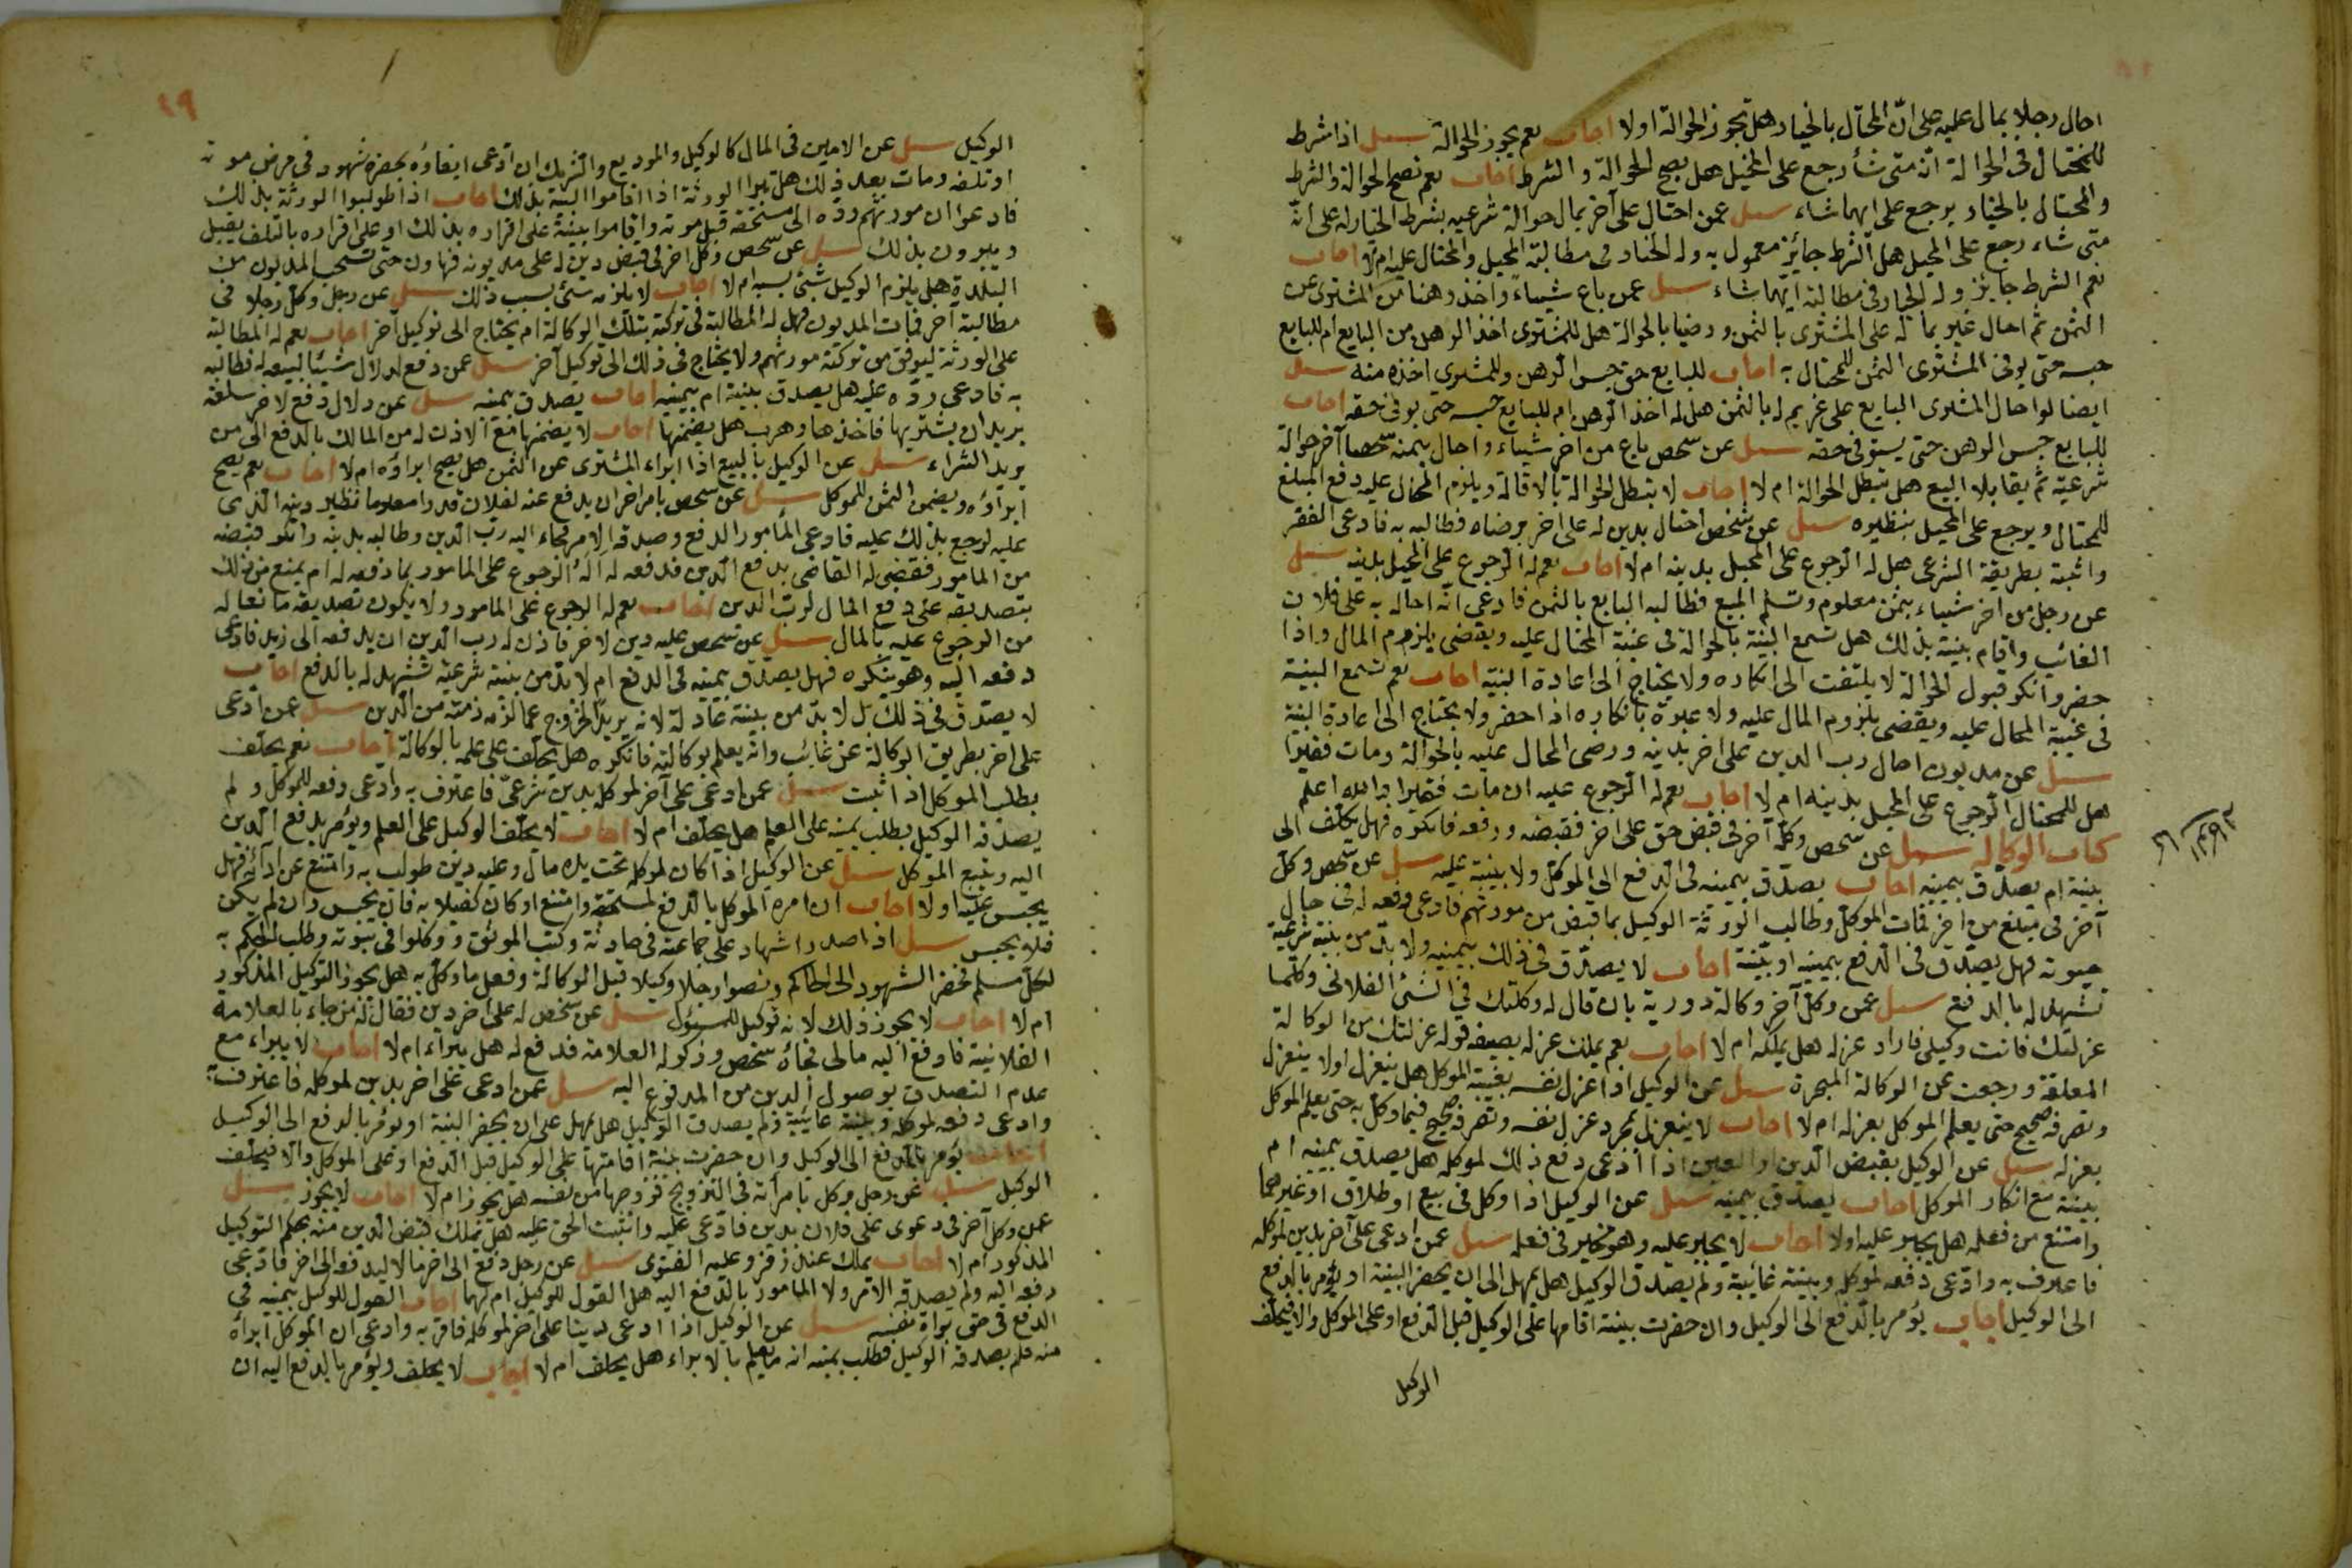 احال رجلا بمال عليه على ان المحتال بالخيار هل تجوز الحوالة اولا اجاب نعم يجوز الحوالة سيل اذا شرط
للمحتال فى الحوالة انه متى شأ رجع على المحيل هل يصح الحوالة والشرط اجاب نعم تصح الحوالة والشرط
والمحتال بالخيار يرجع على ايهما شاء سيل عمن احتال على آخر بمال حوالة شرعيه بشرط الخيار له على انه
متى شاء رجع على المحيل هل الشرط جايز معمول به وله الخيار فى مطالبة المحيل والمحتال عليه ام لا اجاب
نعم الشرط جايز وله الخيار فى مطالبة ايهما شاء سيل عمن باع شيأ واخذ رهنا من المشترى عن
الثمن ثم احال غيره بما له على المشترى بالثمن ورضيا بالحوالة هل للمشترى اخذ الرهن من البايع ام للبايع
حبسه حتى يوفى المشترى الثمن للمحتال به اجاب للبايع حق حبس الرهن وللمشترى اخذه منه سيل
ايضا لو احال المشترى البايع على غريم له بالثمن هل له اخذ الرهن ام للبايع حبسه حتى يوفى حقه اجاب
للبايع حبس الرهن حتى يستوفى حقه سيل عن شخص باع من اخر شيأ واحال بثمنه شخصا آخر حوالة
شرعية ثم يقابلا البيع هل تبطل الحوالة ام لا اجاب لا تبطل الحوالة بالاقالة ويلزم المحال عليه دفع المبلغ
للمحتال ويرجع على المحيل بنظيره سيل عن شخص احتال بدين له على اخر برضاه فطالبه به فادعى الفقر
واثبته بطريقة الشرعى هل له الرجوع على المحيل بدينه ام لا اجاب نعم له الرجوع على المحيل بدينه سيل
عن رجل من اخر شيأ بثمن معلوم وتسلم المبيع فطالبه البايع بالثمن فادعى انه احاله به على فلان
الغائب واقام بينة بذلك هل تسمع البينة بالحوالة فى غيبة المحتال عليه ويقضى بلزوم المال واذا
حضر وانكر قبول الحوالة لا يلتفت الى انكاره ولا يحتاج الى اعادة البينة اجاب نعم تسمع البينة
فى غيبة المحال عليه ويقضى بلزوم المال عليه ولا عبرة بانكاره اذا حضر ولا يحتاج الى اعادة البينة
سيل عن مديون احال رب الدين على اخر بدينه ورضى المحال عليه بالحوالة ومات فقيرا
هل للمحتال الرجوع على المحيل بدينه ام لا اجاب نعم له الرجوع عليه ان مات فقيرا والله اعلم
كتاب الوكالة سيل عن شخص وكل آخر فى قبض حق على اخر فقبضه ودفعه فانكره فهل يكلف الى
بينة ام يصدق بيمينه اجاب يصدق بيمينه فى الدفع الى الموكل ولا بينة عليه سيل عن شخص وكل
آخر فى مبلغ من اخر فمات الموكل وطالب الورثة الوكيل بما قبض من مورثهم فادعى دفعه له فى حال
حيوته فهل يصدق فى الدفع بيمينه او بينة اجاب لا يصدق فى ذلك بيمينه ولا بد من بينة شرعية
تشهد له بالدفع سيل عمن وكل آخر وكالة دورية بان قال له وكلتك فى الشئ الفلانى وكلما
عزلتك فانت وكيلى فاراد عزله هل يملكه ام لا اجاب نعم يملك عزله بصيغة قوله عزلتك من الوكالة
المعلقة ورجعت عن الوكالة المنجزة سيل عن الوكيل اذا عزل نفسه بغيبة الموكل هل ينعزل اولا ينعزل
وتصرفه صحيح حتى يعلم الموكل بعزله ام لا اجاب لا ينعزل بمجرد عزل نفسه وتصرفه صحيح فيما وكل به حتى يعلم الموكل
بعزله سيل عن الوكيل بقبض الدين او العين اذا ادعى دفع ذلك لموكله هل يصدق بيمينه ام
بينة مع انكار الموكل اجاب يصدق بيمينه سيل عن الوكيل اذا وكل فى بيع او طلاق او غيرهما
وامتنع من فعله هل يجبر عليه اولا اجاب لا يجبر عليه وهو مخير فى فعله سيل عمن ادعى على آخر بدين لموكله
فاعترف به وادعى دفعه لموكله وبينة غائبة ولم يصدق الوكيل هل يمهل الى ان يحضر البينة او يؤمر بالدفع
الى الوكيل اجاب يؤمر بالدفع الى الوكيل وان حضرت بينة اقامها على الوكيل قبل الدفع او على الموكل والا فيحلف
الوكيل
٤٩
الوكيل سيل عن الامين فى المال كالوكيل والمودع والشريك ان ادعى ايفاؤه بحضرة شهود فى مرض موته
او تلفه ومات بعد ذلك هل تبرا الورثة اذا اقاموا البينة بذلك اجاب اذا طولبوا الورثة بذلك
فادعوا ان مورثهم رده الى مستحقه قبل موته واقاموا بينة على اقراره بذلك او على اقراره بالتلف يقبل
ويبرون بذلك سيل عن شخص وكل اخر فى قبض دين له على مديونه فتهاون حتى تسحب المديون من
البلدة هل يلزم الوكيل شئ بسببه ام لا اجاب لا يلزمه شئ بسبب ذلك سيل عن رجل وكل رجلا فى
مطالبة آخر فمات المديون فهل له المطالبة فى تركته بتلك الوكالة ام يحتاج الى توكيل آخر اجاب نعم له المطالبة
على الورثة ليوفى من تركة مورثهم ولا يحتاج فى ذلك الى توكيل آخر سيل عمن دفع لدلال شيئا ليبيعه له فطالبه
به فادعى رده عليه هل يصدق ببينة ام بيمينه اجاب يصدق بيمينه سيل عن دلال دفع لاخر سلعة
يريد ان يشتريها فاخذها وهرب هل يضمنها اجاب لا يضمنها مع الاذن له من المالك بالدفع الى من
يريد الشراء سيل عن الوكيل بالبيع اذا ابراء المشترى عن الثمن هل يصح ابراؤه ام لا اجاب نعم يصح
ابراؤه ويضمن الثمن للموكل سيل عن شخص يامر اخر ان يدفع عنه لفلان قدرا معلوما نظير دينه الذى
عليه ليرجع بذلك عليه فادعى المامور الدفع وصدقه الامر فجاء اليه رب الدين وطالبه بدينه وانكر قبضه
من المامور فقضى له القاضى بدفع الدين فدفعه له أله الرجوع على المامور بما دفعه له ام يمنع من ذلك
بتصديقه على دفع المال لرب الدين اجاب نعم له الرجوع على المامور ولا يكون تصديقه مانعا له
من الرجوع عليه بالمال سيل عن شخص عليه دين لاخر فاذن له رب الدين ان يدفعه الى زيد فادعى
دفعه اليه وهو ينكره فهل يصدق بيمينه فى الدفع ام لا بد من بينة شرعية تشهد له بالدفع اجاب
لا يصدق فى ذلك بل لا بد من بينة عادلة لانه يريد الخروج عما لزم ذمته من الدين سيل عمن ادعى
على اخر بطريق الوكالة عن غائب وانه يعلم بوكالته فانكره هل يحلف على علمه بالوكالة اجاب نعم يحلف
بطلب الموكل اذا ثبت سيل عمن ادعى على آخر لموكله بدين شرعى فاعترف به وادعى دفعه للموكل ولم
يصدقه الوكيل بطلب يمينه على العلم هل يحلف ام لا اجاب لا يحلف الوكيل على العلم ويؤمر بدفع الدين
اليه ويتبع الموكل سيل عن الوكيل اذا كان لموكله تحت يده مال وعليه دين طولب به وامتنع عن ادائه فهل
يحبس عليه اولا اجاب ان امره الموكل بالدفع لمستحقه وامتنع او كان كفيلا به فانه يحبس وان لم يكن
فلا يحبس سيل اذا صدر اشهاد على جماعة فى حادثة وكتب الموثق ووكلوا فى ثبوته وطلب الحكم به
لكل مسلم فحضر الشهود الى الحاكم ونصبوا رجلا وكيلا قبل الوكالة وفعل ما وكل به هل يجوز التوكيل المذكور
ام لا اجاب لا يجوز ذلك لانه توكيل للمسئول سيل عن شخص له على اخر دين فقال له من جاء بالعلامة
الفلانية فادفع اليه مالى فجاءه شخص وذكر له العلامة فدفع له هل يبراء ام لا اجاب لا يبراء مع
عدم التصدق بوصول الدين من المدفوع اليه سيل عمن ادعى على اخر بدين لموكله فاعترف به
وادعى دفعه لموكله وبينة غائبة ولم يصدق الوكيل هل يمهل على ان يحضر البينة او يؤمر بالدفع الى الوكيل
اجاب يؤمر بالدفع الى الوكيل وان حضرت بينة اقامتها على الوكيل قبل الدفع او على الموكل والا فيحلف
الوكيل سيل عن رجل وكل بامرأته فى التزويج فزوجها من نفسه هل يجوز ام لا اجاب لا يجوز سيل
عمن وكل آخر فى دعوى على فلان بدين فادعى عليه واثبت الحق عليه هل تملك قبض الدين منه بحكم التوكيل
المذكور ام لا اجاب يملك عند زفر وعليه الفتوى سيل عن رجل دفع الى اخر مالا ليدفعه الى اخر فادعى
دفعه اليه ولم يصدقه الامر ولا المامور بالدفع اليه هل القول للوكيل ام لهما اجاب القول للوكيل بيمينه فى
الدفع فى حق براة نفسه سيل عن الوكيل اذا ادعى دينا على اخر لموكله فاقر به وادعى ان الموكل ابراه
منه فلم يصدقه الوكيل فطلب يمينه انه ما يعلم بالابراء هل يحلف ام لا اجاب لا يحلف ويؤمر بالدفع اليه ان